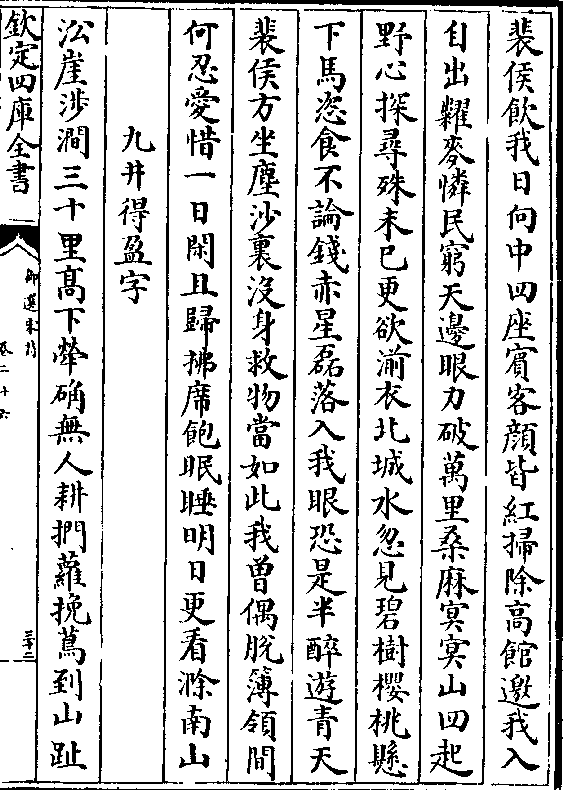 裴侯飲我日向中四座賓客顔皆紅掃除高館邀我入
自出糶麥憐民窮天邊眼力破萬里桑麻冥冥山四起
野心探尋殊未已更欲湔衣北城水忽見碧樹櫻桃懸
下馬恣食不論錢赤星磊落入我眼恐是半醉遊青天
裴侯方坐塵沙裏沒身救物當如此我曾偶脫簿領間
何忍愛惜一日閑且歸拂席飽眠睡明日更看滁南山
九井得盈字
沿崖涉澗三十里高下犖确無人耕捫蘿挽蔦到山趾
欽定四庫全書
御選宋詩
卷二十六
三十三